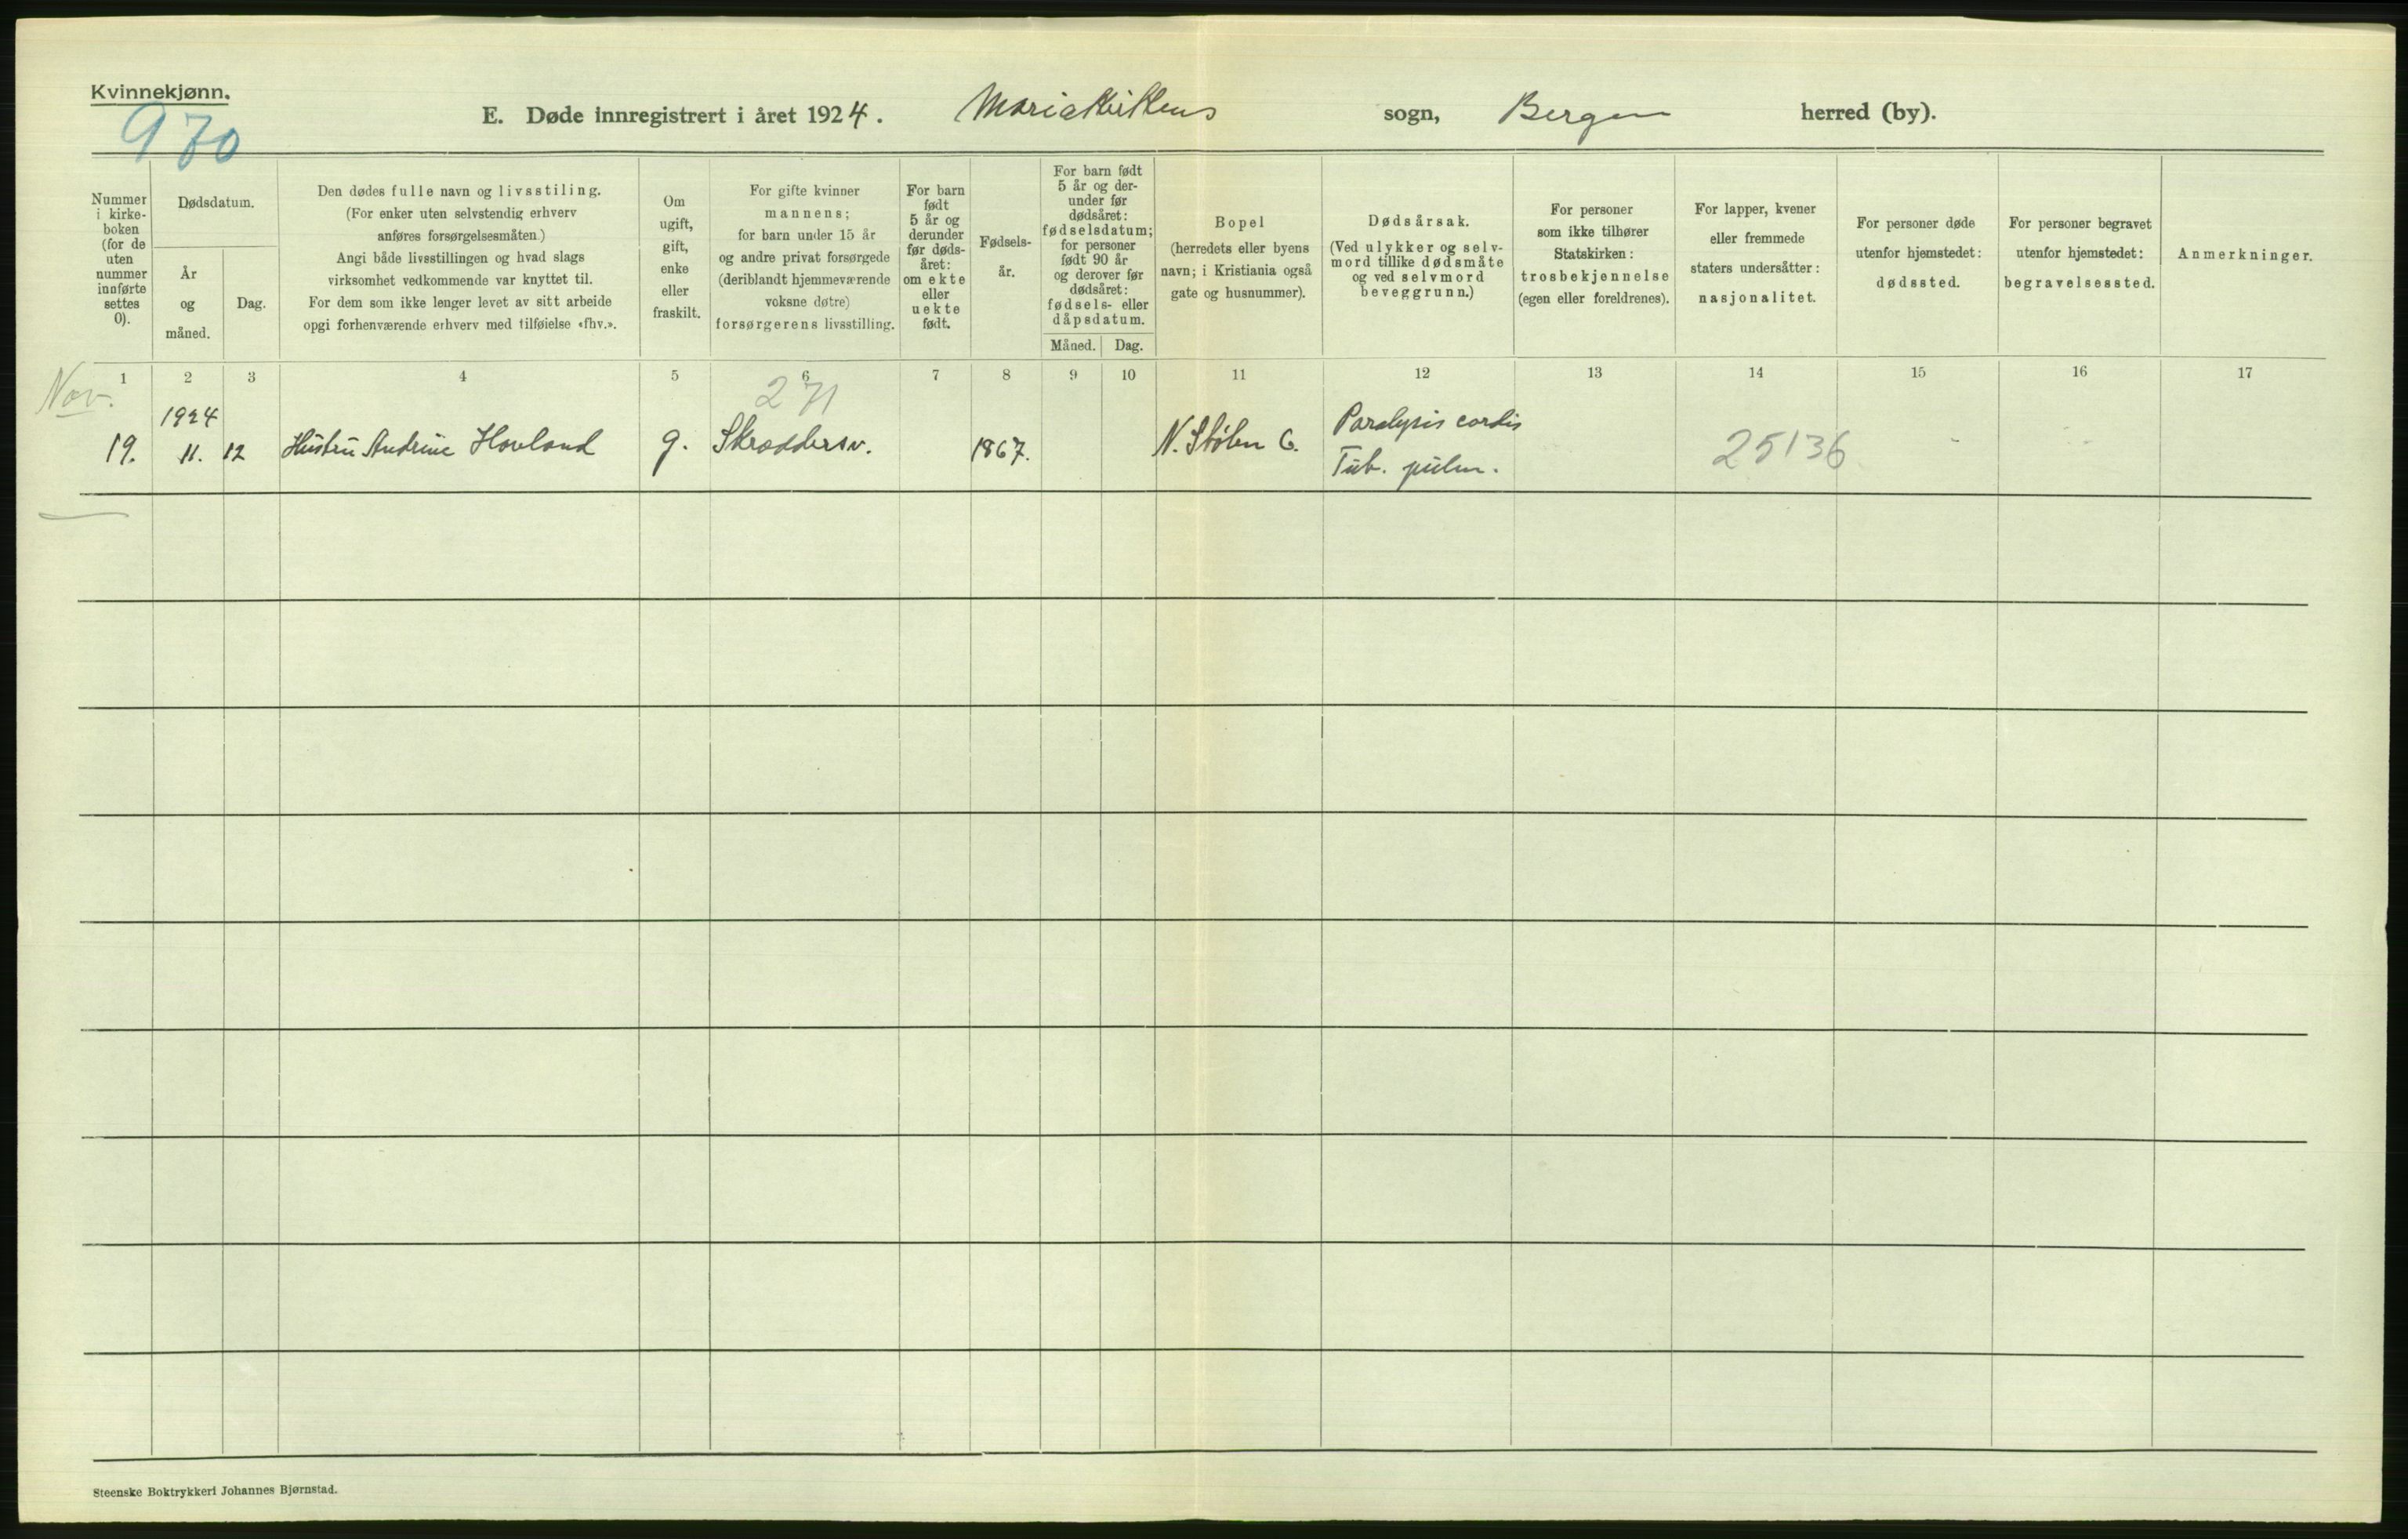 Kvinnekjønn.
970
E. Døde innregistrert i året 1924. Mariakirkens sogn, Bergen herred (by).
Nummer
i kirke-
boken
(for de
uten
nummer
innførte
settes
0).
Dødsdatum.
År
og
måned.
Dag.
Den dødes fulle navn og livsstiling.
(For enker uten selvstendig erhverv
anføres forsørgelsesmåten.)
Angi både livsstillingen og hvad slags
virksomhet vedkommende var knyttet til.
For dem som ikke lenger levet av sitt arbeide
opgi forhenværende erhverv med tilføielse «fhv.».
Om
ugift,
gift,
enke
eller
fraskilt.
For gifte kvinner
mannens;
for barn under 15 år
og andre privat forsørgede
(deriblandt hjemmeværende
voksne døtre)
forsørgerens livsstilling.
For barn
født
5 år og
derunder
før døds-
året:
om ekte
eller
uekte
født.
Fødsels-
år.
For barn født
5 år og der-
under før
dødsåret:
fødselsdatum;
for personer
født 90 år
og derover før
dødsåret:
fødsels- eller
dåpsdatum.
Måned. Dag.
Bopel
(herredets eller byens
navn; i Kristiania også
gate og husnummer).
Dødsårsak.
(Ved ulykker og selv-
mord tillike dødsmåte
og ved selvmord
beveggrunn.)
For personer
som ikke tilhører
Statskirken:
trosbekjennelse
(egen eller foreldrenes).
For lapper, kvener
eller fremmede
staters undersåtter:
nasjonalitet.
For personer døde
utenfor hjemstedet:
dødssted.
For personer begravet
utenfor hjemstedet:
begravelsessted.
Anmerkninger.
1 2 3 4 5 6 7 8 9 10 11 12 13 14 15 16 17
Nov.
271
1924
Paralysis cordis
19. 11. 12 Hustru Andrine Hovland g. Skræddersv. 1867. N. Stølen 6. 25136 -
Tub. pulm.
Steenske Boktrykkeri Johannes Bjørnstad.